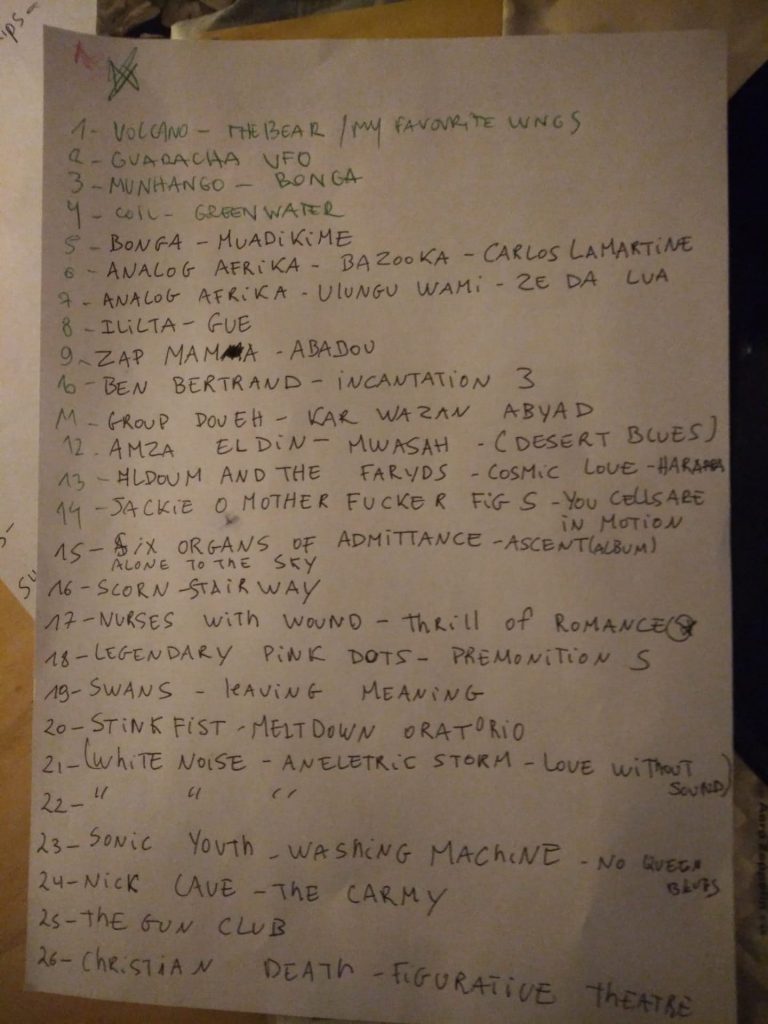 1- VOLCANO - THE BEAR / MY FAVOURITE WNGS
2- GUARACHA UFO
3- MUNHANGO - BONGA
4- COIL - GREEN WATER
5- BONGA - MUADIKIME
6- ANALOG AFRIKA - BAZOOKA - CARLOS LAMARTINE
7- ANALOG AFRIKA - ULUNGU WAMI - ZE DA LUA
8- ILILTA - GUE
9- ZAP MAMMA - ABADOU
10- BEN BERTRAND - INCANTATION 3
11- GROUP DOUEH - KAR WAZAN ABYAD
12. AMZA ELDIN - MWASAH - (DESERT BLUES)
13- ALDOUM AND THE FARYDS - COSMIC LOVE -
14- JACKIE O MOTHER FUCKER FIG 5 - YOU CELLS ARE
IN MOTION
15- SIX ORGANS OF ADMITTANCE - ASCENT (ALBUM)
ALONE TO THE SKY
16- SCORN - STAIRWAY
17- NURSES WITH WOUND - THRILL OF ROMANCE
18- LEGENDARY PINK DOTS - PREMONITION 5
19- SWANS - LEAVING MEANING
20- STINK FIST - MELTDOWN ORATORIO
21- (WHITE NOISE - AN ELETRIC STORM - LOVE WITHOUT
SOUND)
22- " " "
23- SONIC YOUTH - WASHING MACHINE - NO QUEEN
BLUES
24- NICK CAVE - THE CARMY
25- THE GUN CLUB
26- CHRISTIAN DEATH - FIGURATIVE THEATRE